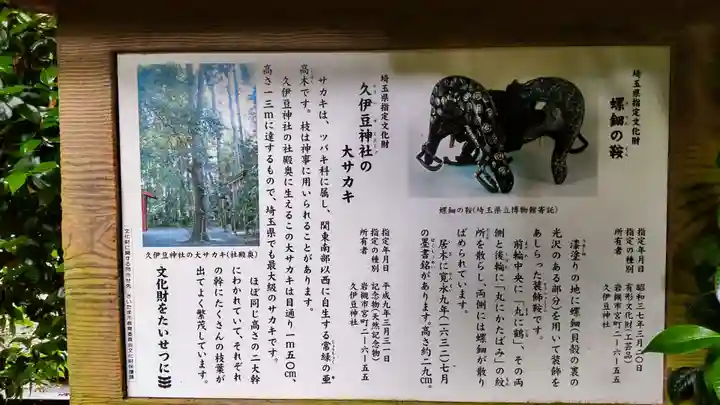 埼玉県指定文化財
螺鈿の鞍
指定年月日　昭和三七年三月二〇日
指定の種別　有形文化財(工芸品)
所有者　岩槻市宮町二ー六ー五五
久伊豆神社
漆塗りの地に螺鈿(貝殻の裏の
光沢のある部分)を用いて装飾を
あしらった装飾鞍です。
前輪中央に「丸に鶴」、その両
側と後輪に「丸にかたばみ」の紋
所を散らし、両側には螺鈿が散り
ばめられています。
居木に寛永九年(一六三二)七月
の墨書銘があります。高さ約二九㎝。
螺鈿の鞍(埼玉県立博物館寄託)
埼玉県指定文化財
久伊豆神社の
大サカキ
指定年月日　平成九年三月三一日
指定の種別　記念物(天然記念物)
所有者　岩槻市宮町二ー六ー五五
久伊豆神社
サカキは、ツバキ科に属し、関東南部以西に自生する常緑の亜
高木です。枝は神事に用いられることがあります。
久伊豆神社の社殿奥に生えるこの大サカキは目通り一ｍ五〇㎝、
高さ一三ｍに達するもので、埼玉県でも最大級のサカキです。
ほぼ同じ高さの二大幹
にわかれていて、それぞれ
の幹にたくさんの枝葉が
出てよく繁茂しています。
久伊豆神社の大サカキ(社殿奥)
文化財をたいせつに